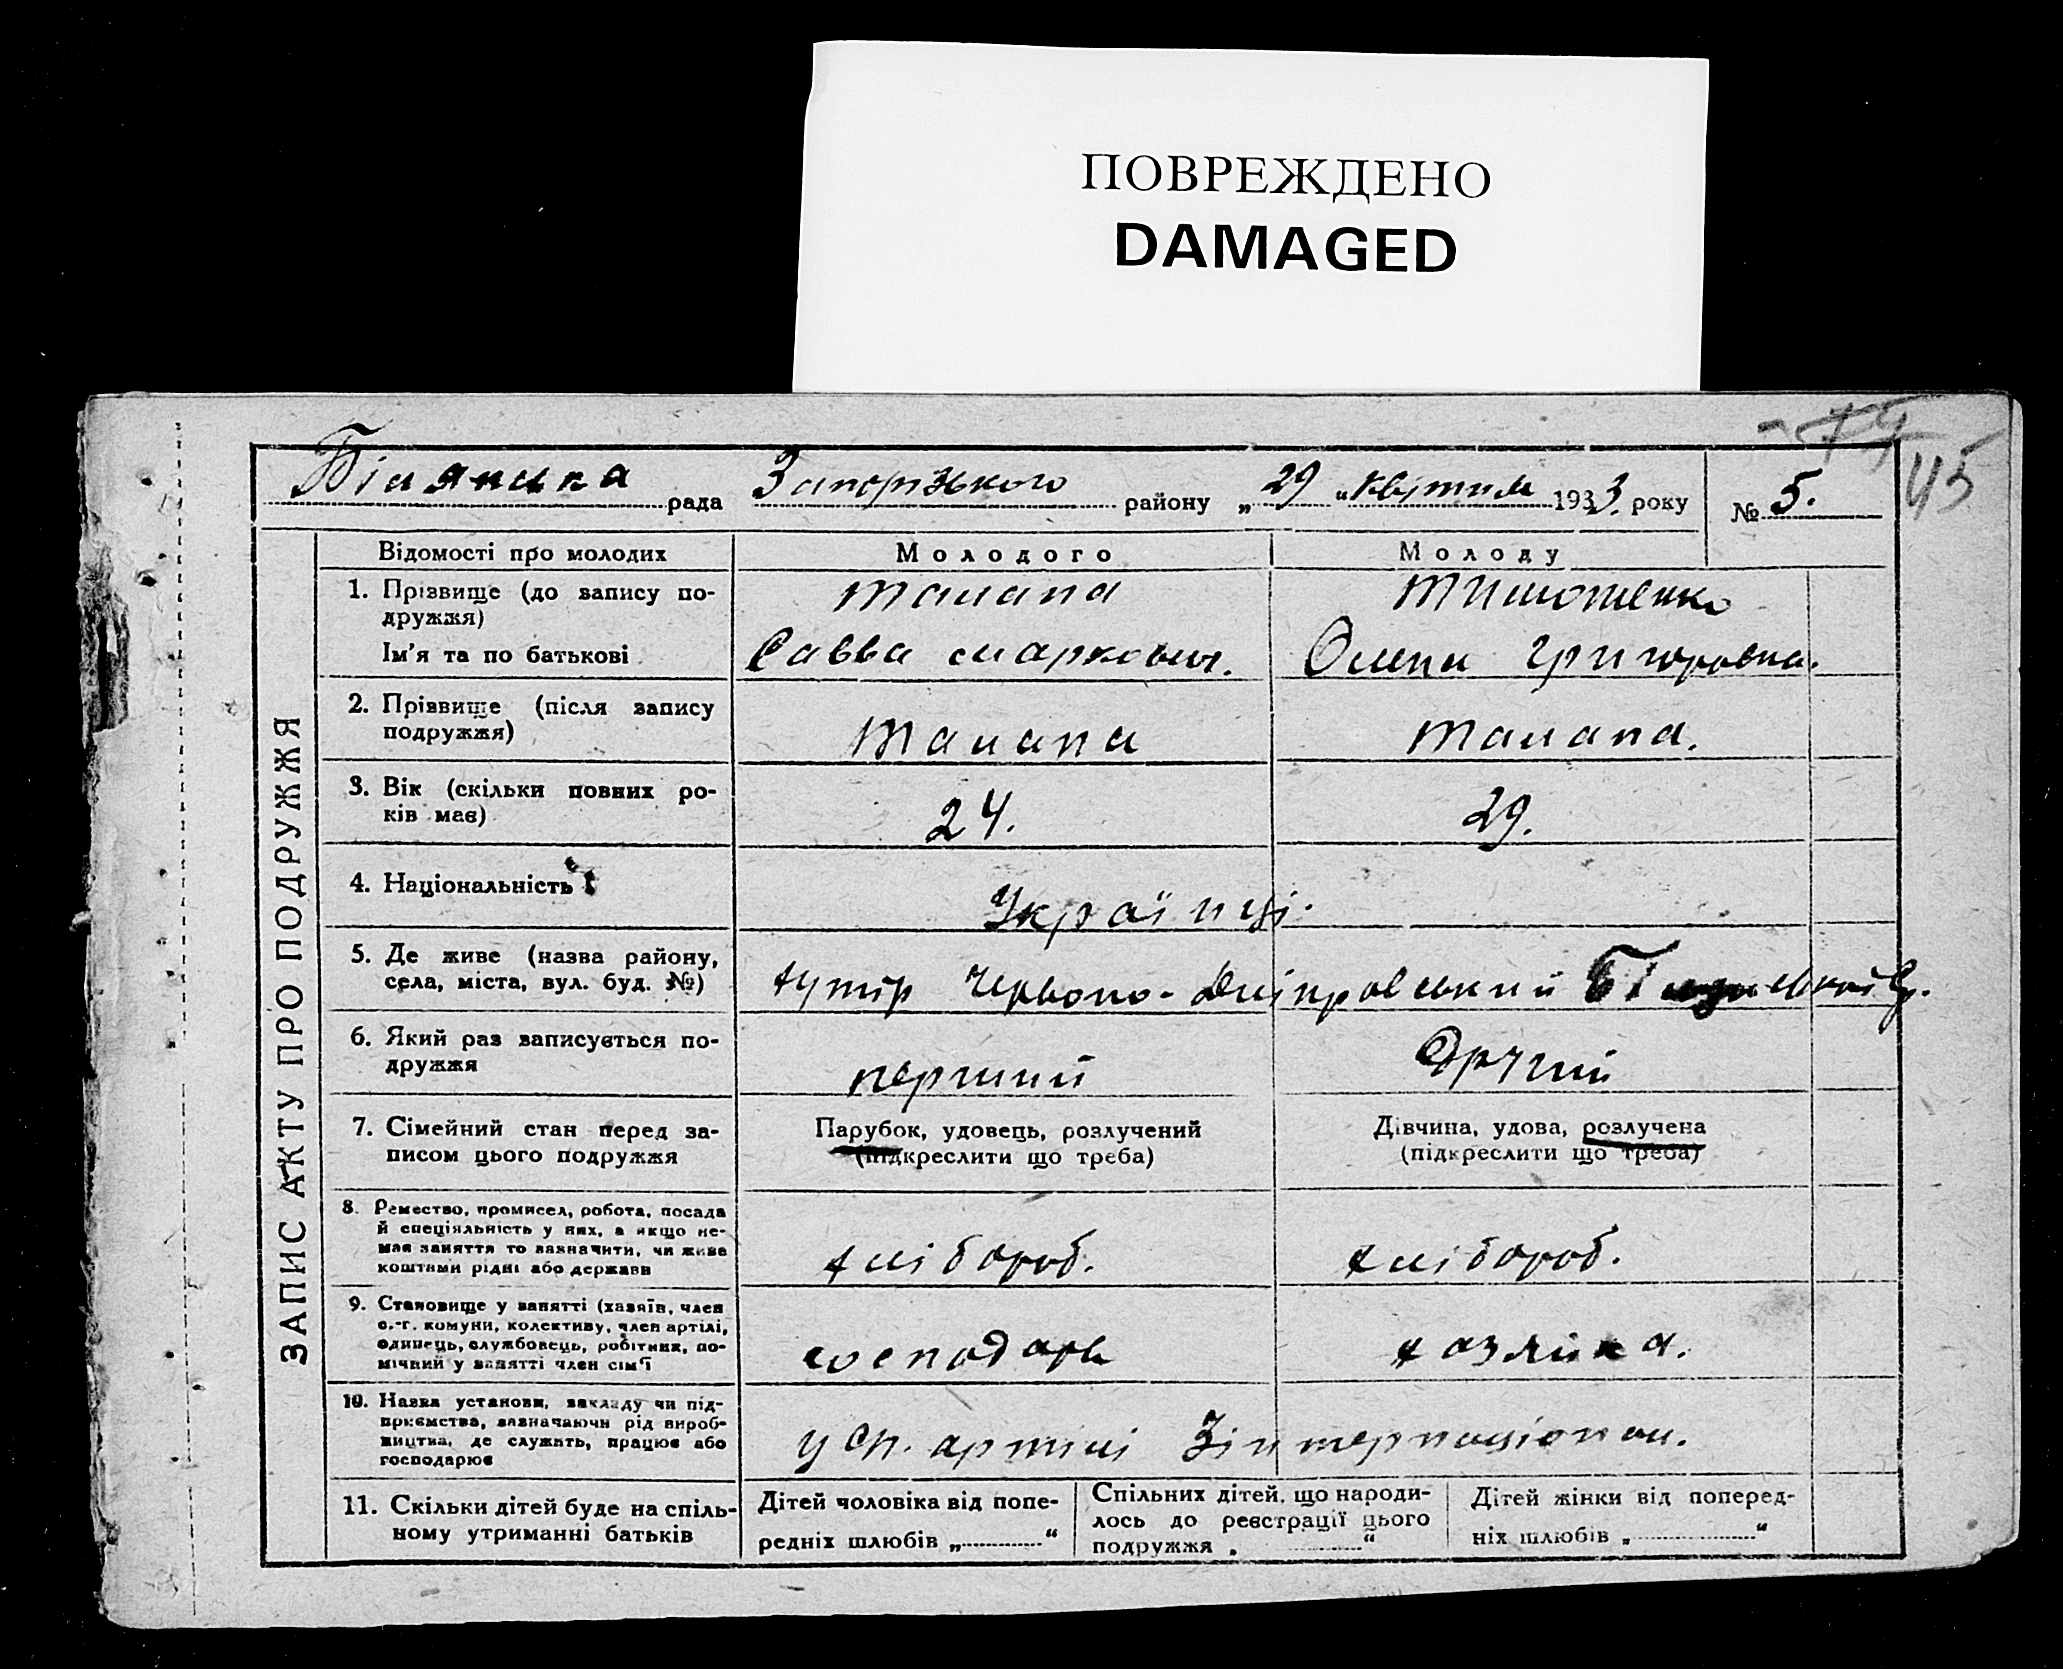 ПОВРЕЖДЕНО
DAMAGED
45
Білянська рада Запорізького району „ 29 “ Квітня 1933 року № 5.
ЗАПИС АКТУ ПРО ПОДРУЖЖЯ
Відомості про молодих Молодого Молоду
1. Прізвище (до запису по-
дружжя)
Талапа Тимошенко
Ім'я та по батькові Савва Маркович. Олена Григоровна.
2. Прізвище (після запису
подружжя)
Талапа Талапа.
3. Вік (скільки повних ро-
ків має)
24. 29.
4. Національність
Українці.
5. Де живе (назва району,
села, міста, вул. буд. №)
хутір Червоно-Дніпровський
6. Який раз записується по-
дружжя
перший Другий
7. Сімейний стан перед за-
писом цього подружжя
Парубок, удовець, розлучений
(підкреслити що треба)
Дівчина, удова, розлучена
(підкреслити що треба)
8. Ремество, промисел, робота, посада
й спеціяльність у них, а якщо не-
має заняття то зазначити, чи живе
коштами рідні або держави
хлібороб. хлібороб.
9. Становище у занятті (хазяїн, член
с.-г. комуни, колективу, член артілі,
одинець, службовець, робітник, по-
мічний у занятті член сім'ї
господарь хазяйка.
10. Назва установи, закладу чи під-
приємства, зазначаючи рід вироб-
ництва, де служить, працює або
господарює
у с.г. артілі Зінтернаціонал.
11. Скільки дітей буде на спіль-
ному утриманні батьків
Дітей чоловіка від попе-
редніх шлюбів „ “
Спільних дітей, що народи-
лось до реєстрації цього
подружжя „ “
Дітей жінки від поперед-
ніх шлюбів „ “